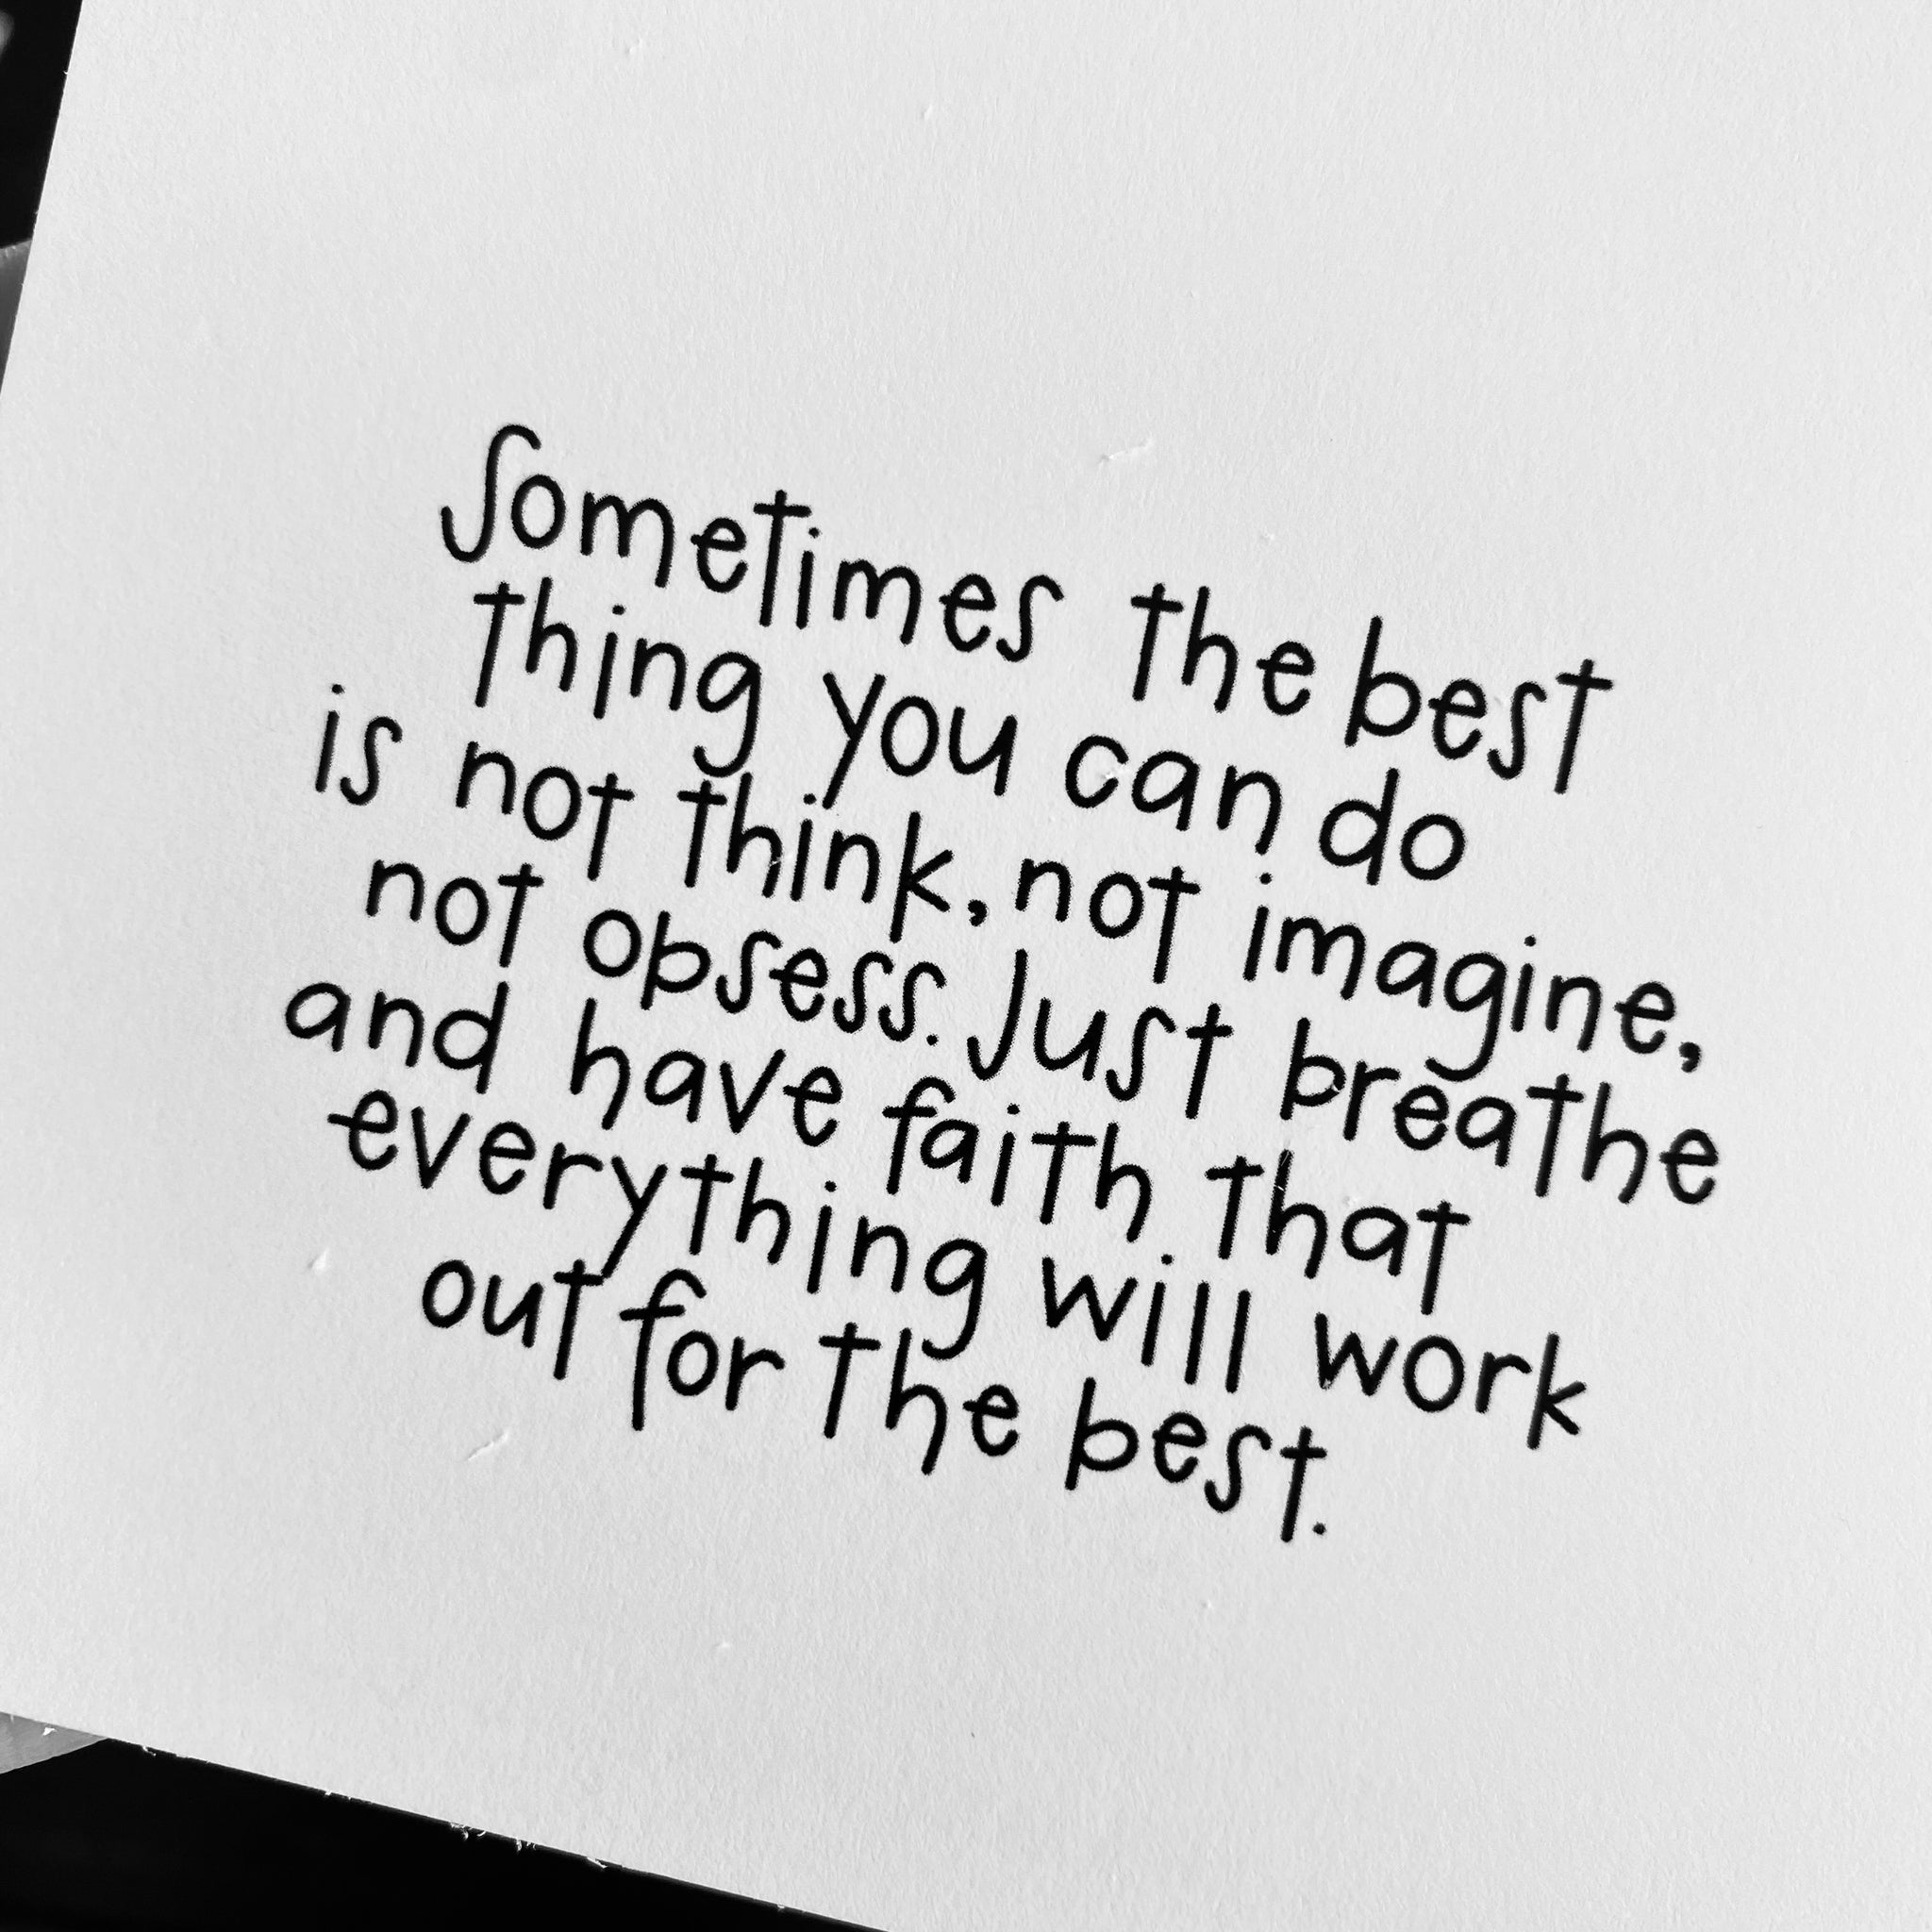 Sometimes the best
thing you can do
is not think, not imagine,
not obsess. Just breathe
and have faith that
everything will work
out for the best.